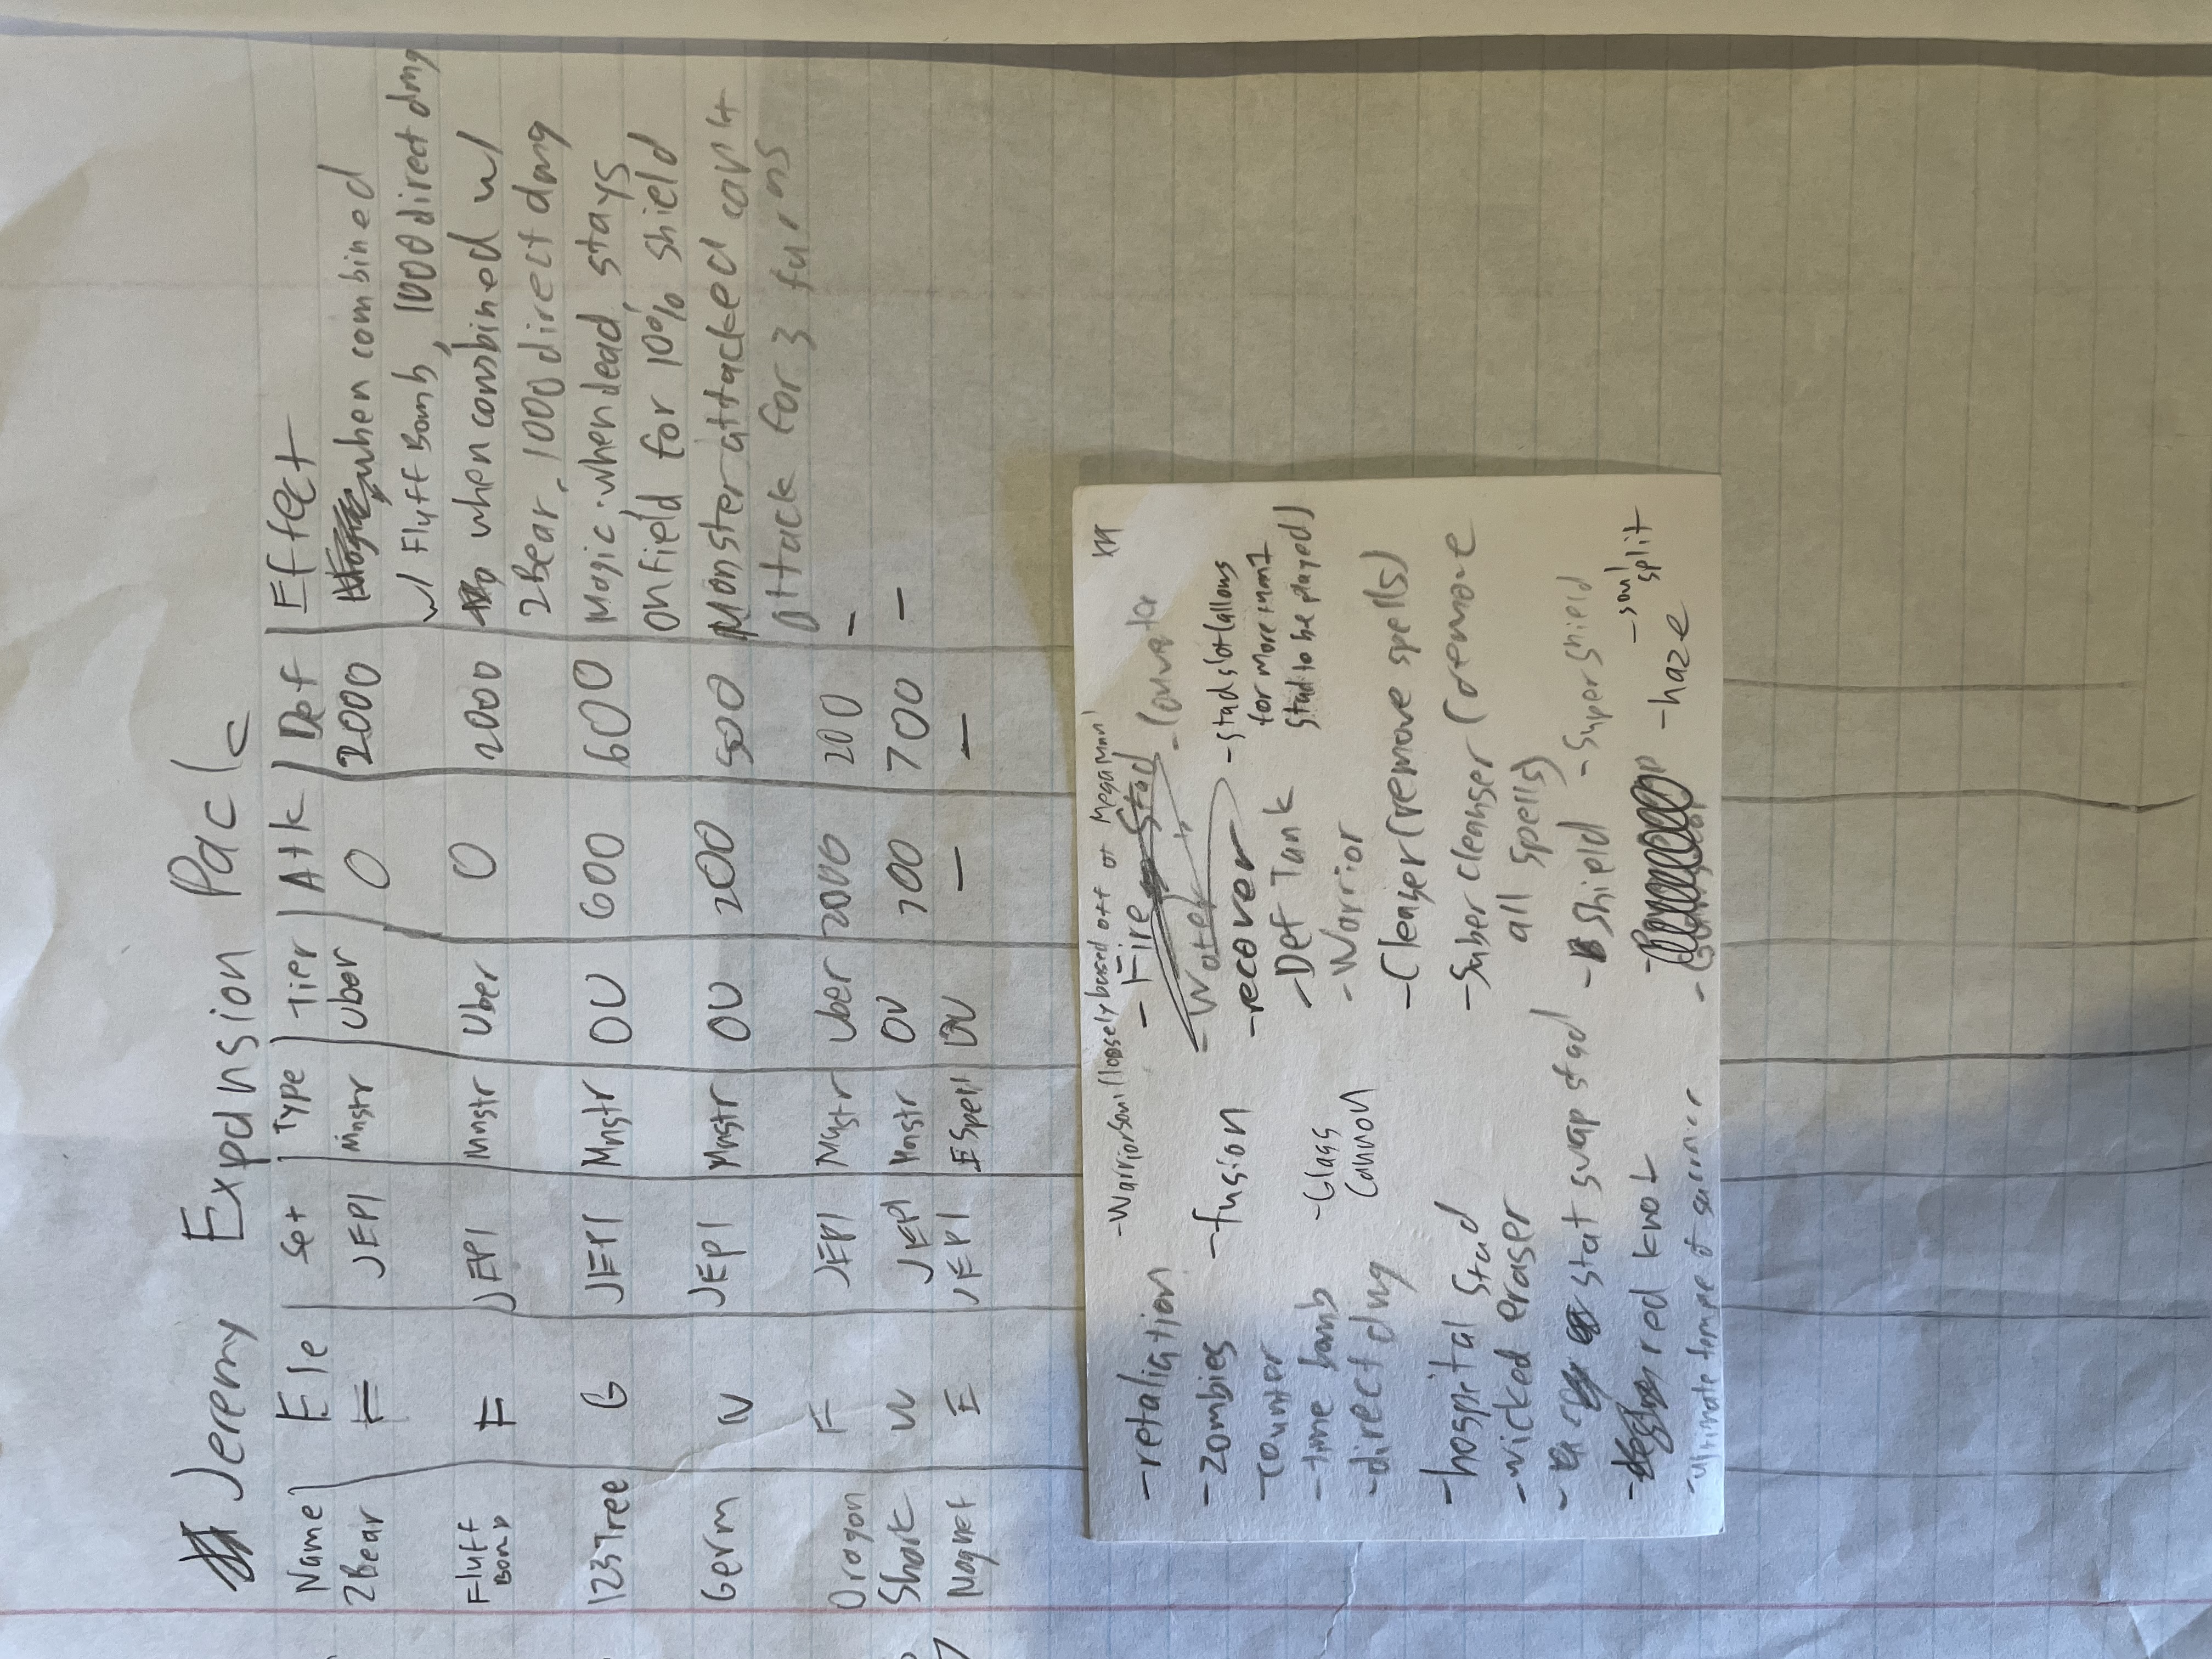 Jeremy Expansion Pack
Name Ele Set Type Tier Atk Def Effect
2Bear F JEP1 Mnstr Uber 0 2000 when combined
w/ Fluff Bomb, 1000 direct dmg
Fluff Bomb F JEP1 Mnstr Uber 0 2000 when combined w/
2Bear, 1000 direct dmg
123Tree G JEP1 Mnstr OU 600 600 Magic; when dead, stays
on field for 10% shield
Germ N JEP1 Mnstr OU 200 500 Monster attacked can't
attack for 3 turns
Dragon F JEP1 Mnstr Uber 2000 200 -
Shark W JEP1 Mnstr OU 700 700 -
Magnet E JEP1 ESpell OU - -
-WarriorSoul (loosely based off of Megaman)
-retaliation
-zombies
-counter
-time bomb
-direct dmg
-hospital stad
-wicked eraser
- stat swap stad
- red knot
-ultimate
-fusion
-Glass
Cannon
-Fire Stad
-Water "
-recover
-Def Tank
-Warrior
-Cleaser (remove spells)
-Suber cleanser (remove
all spells)
-Shield
-Super shield
-stad slot (allows
for more than 1
stad to be played)
-haze
-soul
split